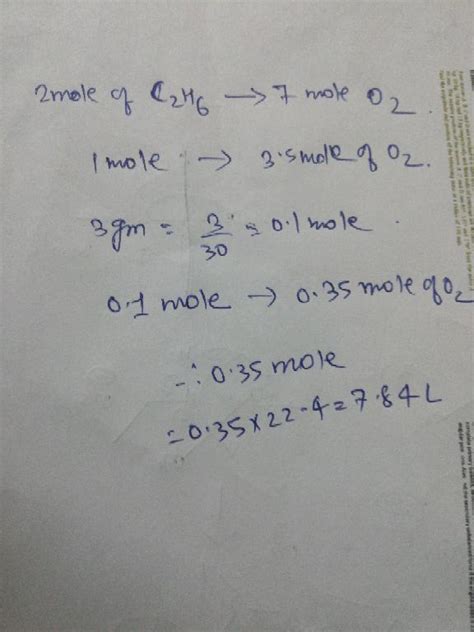 2mole of C2H6 → 7 mole O2.
1 mole → 3.5 mole of O2.
3gm = 3/30 = 0.1 mole.
0.1 mole → 0.35 mole of O2
∴ 0.35 mole
= 0.35 × 22.4 = 7.84 L